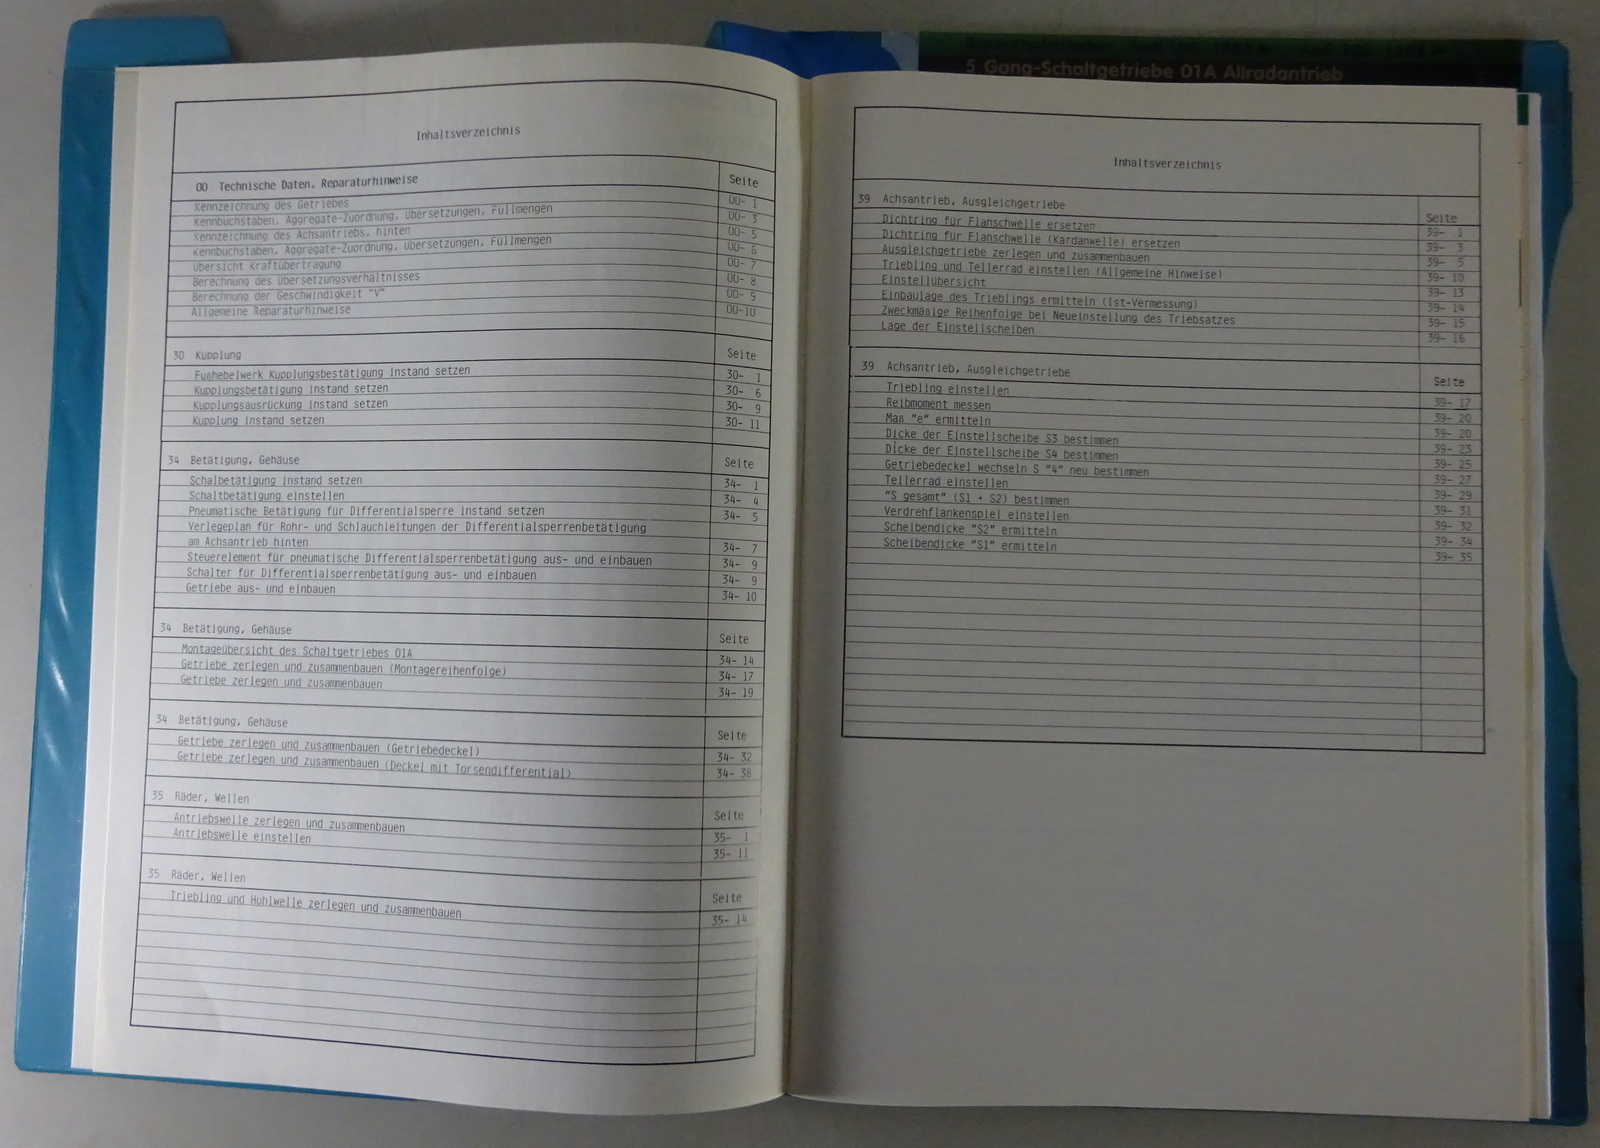 5 Gang-Schaltgetriebe 01A Allradantrieb
Inhaltsverzeichnis
00 Technische Daten, Reparaturhinweise Seite
Kennzeichnung des Getriebes 00- 1
Kennbuchstaben, Aggregate-Zuordnung, Übersetzungen, Füllmengen 00- 3
Kennzeichnung des Achsantriebs, hinten 00- 5
Kennbuchstaben, Aggregate-Zuordnung, Übersetzungen, Füllmengen 00- 6
Übersicht Kraftübertragung 00- 7
Berechnung des Übersetzungsverhältnisses 00- 8
Berechnung der Geschwindigkeit "V" 00- 9
Allgemeine Reparaturhinweise 00-10
30 Kupplung Seite
Fußhebelwerk Kupplungsbestätigung instand setzen 30- 1
Kupplungsbetätigung instand setzen 30- 6
Kupplungsausrückung instand setzen 30- 9
Kupplung instand setzen 30- 11
34 Betätigung, Gehäuse Seite
Schalbetätigung instand setzen 34- 1
Schaltbetätigung einstellen 34- 4
Pneumatische Betätigung für Differentialsperre instand setzen 34- 5
Verlegeplan für Rohr- und Schlauchleitungen der Differentialsperrenbetätigung
am Achsantrieb hinten 34- 7
Steuerelement für pneumatische Differentialsperrenbetätigung aus- und einbauen 34- 9
Schalter für Differentialsperrenbetätigung aus- und einbauen 34- 9
Getriebe aus- und einbauen 34- 10
34 Betätigung, Gehäuse Seite
Montageübersicht des Schaltgetriebes 01A 34- 14
Getriebe zerlegen und zusammenbauen (Montagereihenfolge) 34- 17
Getriebe zerlegen und zusammenbauen 34- 19
34 Betätigung, Gehäuse Seite
Getriebe zerlegen und zusammenbauen (Getriebedeckel) 34- 32
Getriebe zerlegen und zusammenbauen (Deckel mit Torsendifferential) 34- 38
35 Räder, Wellen Seite
Antriebswelle zerlegen und zusammenbauen 35- 1
Antriebswelle einstellen 35- 11
35 Räder, Wellen Seite
Triebling und Hohlwelle zerlegen und zusammenbauen 35- 14
Inhaltsverzeichnis
39 Achsantrieb, Ausgleichgetriebe Seite
Dichtring für Flanschwelle ersetzen 39- 1
Dichtring für Flanschwelle (Kardanwelle) ersetzen 39- 3
Ausgleichgetriebe zerlegen und zusammenbauen 39- 5
Triebling und Tellerrad einstellen (Allgemeine Hinweise) 39- 10
Einstellübersicht 39- 13
Einbaulage des Trieblings ermitteln (Ist-Vermessung) 39- 14
Zweckmäßige Reihenfolge bei Neueinstellung des Triebsatzes 39- 15
Lage der Einstellscheiben 39- 16
39 Achsantrieb, Ausgleichgetriebe Seite
Triebling einstellen 39- 17
Reibmoment messen 39- 20
Maß "e" ermitteln 39- 20
Dicke der Einstellscheibe S3 bestimmen 39- 23
Dicke der Einstellscheibe S4 bestimmen 39- 25
Getriebedeckel wechseln S "4" neu bestimmen 39- 27
Tellerrad einstellen 39- 29
"S gesamt" (S1 + S2) bestimmen 39- 31
Verdrehflankenspiel einstellen 39- 32
Scheibendicke "S2" ermitteln 39- 34
Scheibendicke "S1" ermitteln 39- 35